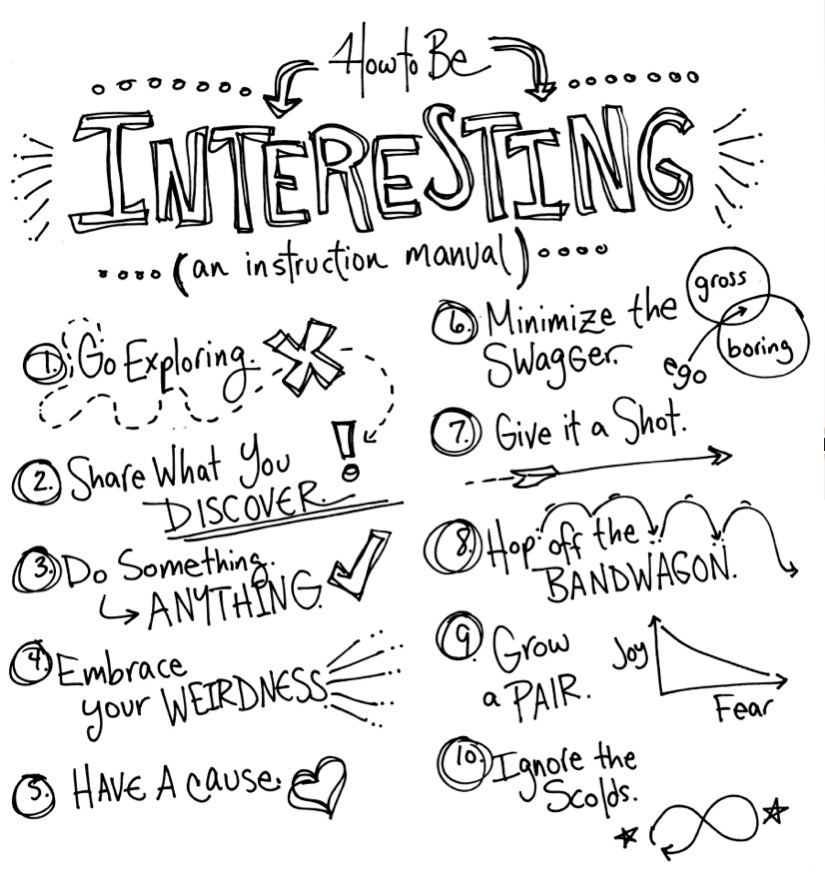 How to Be
INTERESTING
(an instruction manual)
1. Go Exploring.
2. Share What You
DISCOVER.
3. Do Something.
ANYTHING.
4. Embrace
your WEIRDNESS.
5. HAVE A cause.
6. Minimize the
SWAGGER.
gross
boring
ego
7. Give it a Shot.
8. Hop off the
BANDWAGON.
9. Grow
a PAIR.
Joy
Fear
10. Ignore the
Scolds.